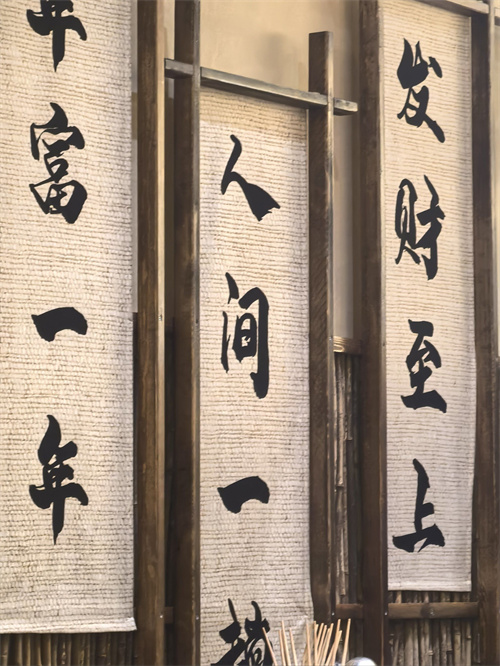 年富一年
人间一
发财至上